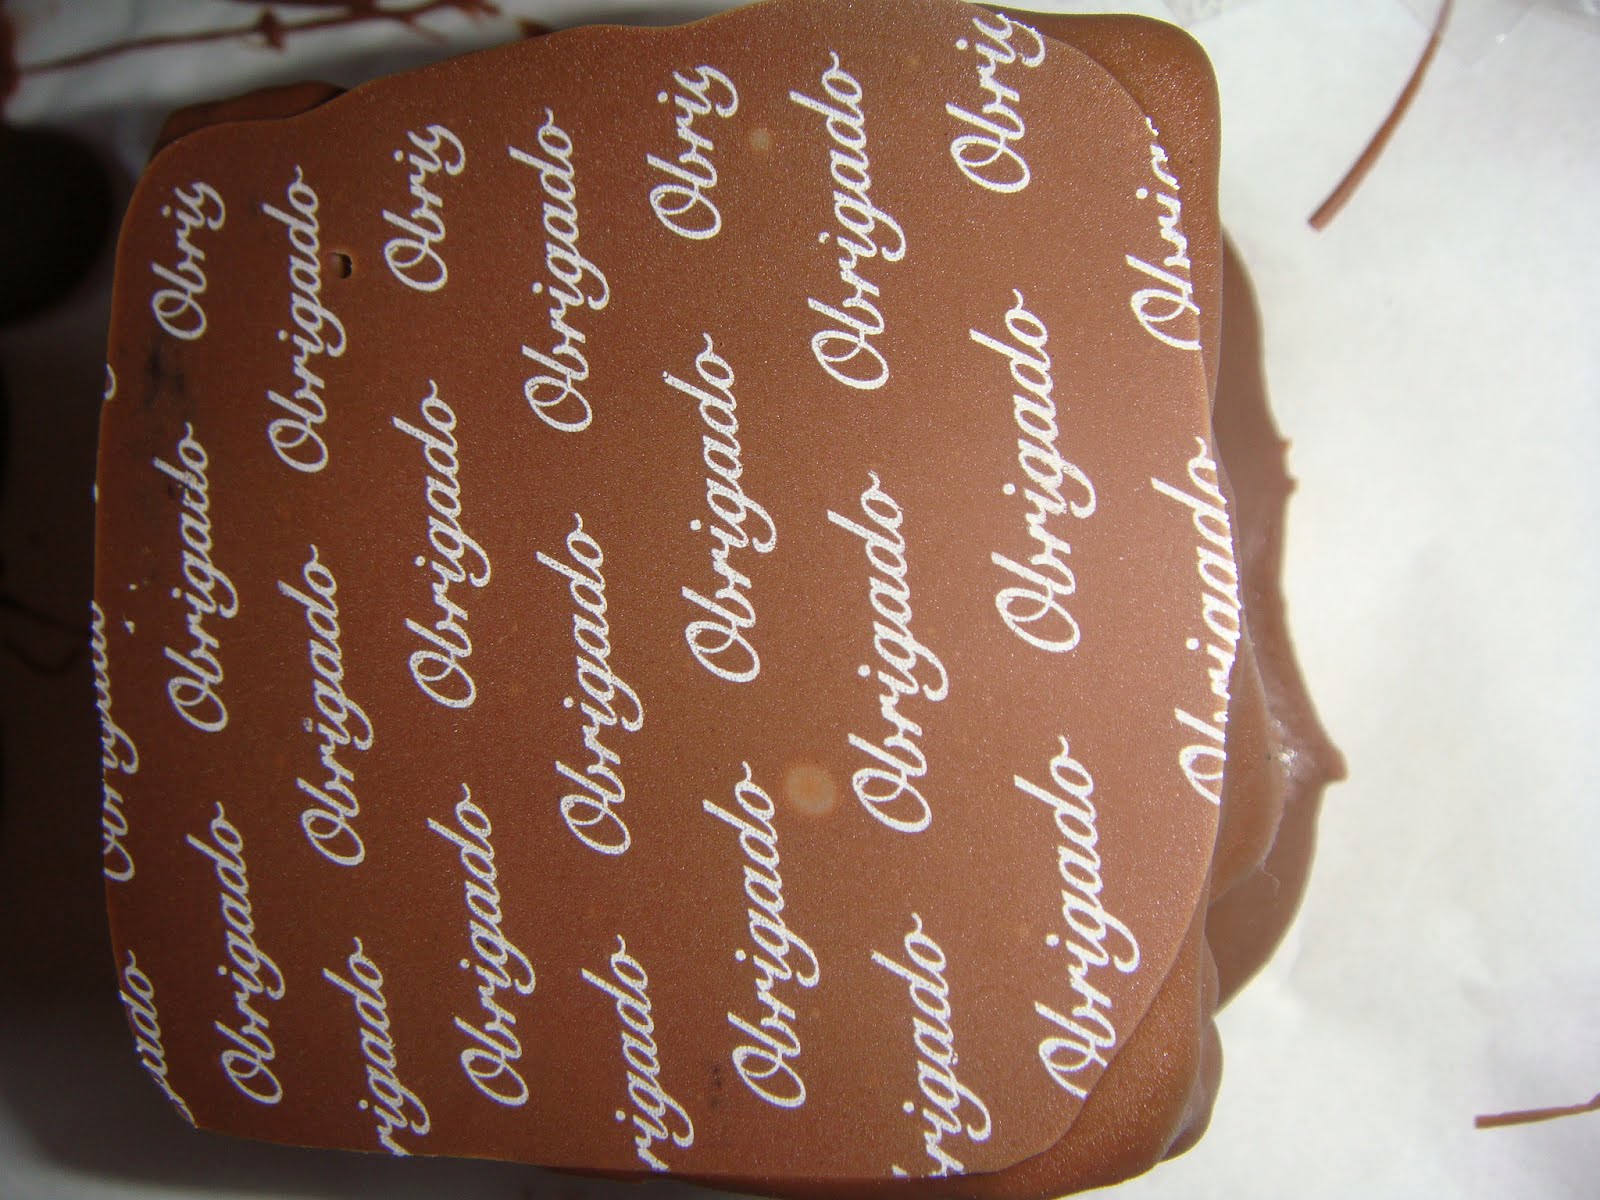 gado
Obrigado Obrigado Obrig
rigado Obrigado Obrigado
Obrigado Obrigado Obrig
rigado Obrigado Obrigado
Obrigado Obrigado Obrig
rigado Obrigado Obrigado
Obrigado Obrigado Obrig
Obrigado